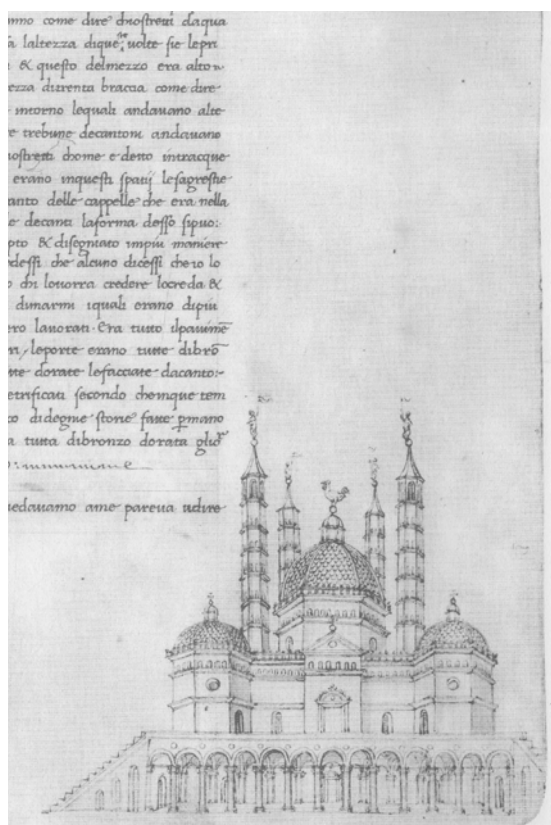 nno come dire dnostretti daqua
a laltezza dique volte sie lepri
& questo delmezzo era alto
ezza ditrenta braccia come dire
intorno lequali andauano alte
e trebune decantoni andauano
nostretti chome e detto intracque
erano inquesti spatij lesagrestie
anto delle cappelle che era nella
e decanti laforma desso sipuo:
pto & disegniato impiu maniere
dessi che alcuno dicessi cheio lo
chi louorra credere locreda &
dimarmi iquali erano dipiu
ero lauorati. Era tutto ilpauime
leporte erano tutte dibro
te dorate lefacciate dacanto:
etrificati secondo cheinque tem
o didegnie storie fatte pmano
a tutta dibronzo dorata
uedauamo ame pareua udire